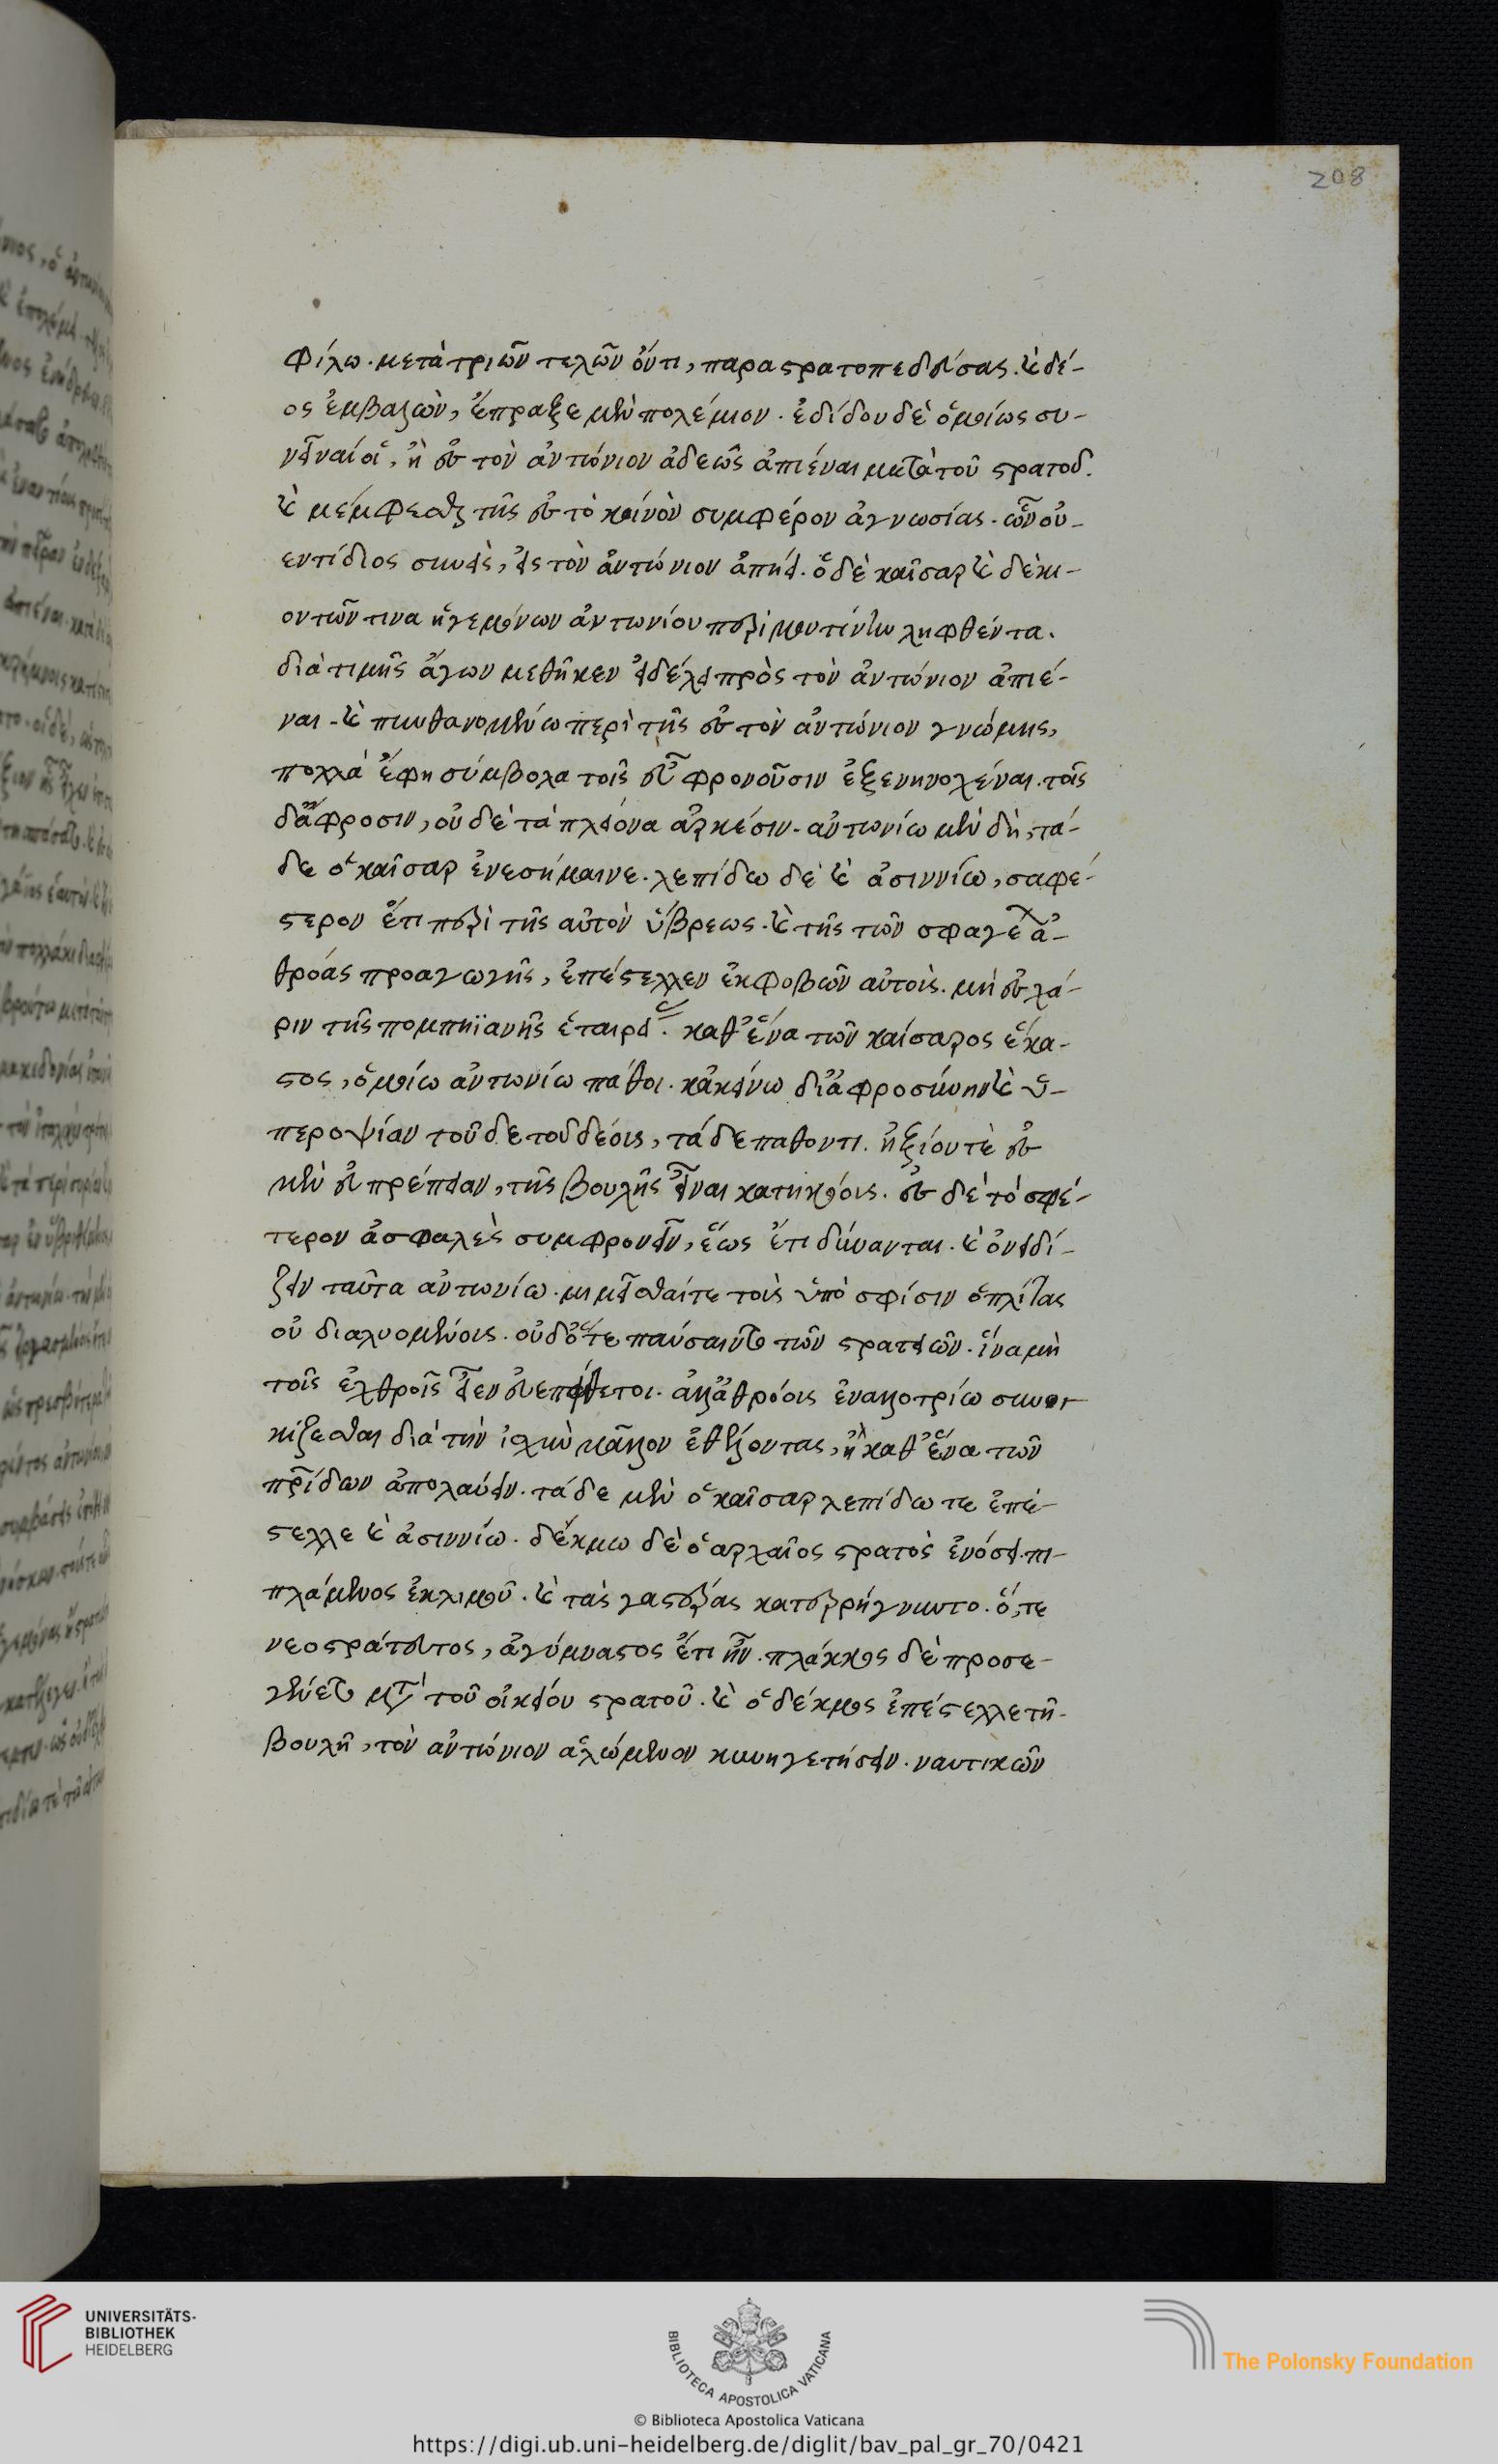 208
φίλω. μετὰ τριῶν τελῶν ὄντι, παραστρατοπεδεύσας. καὶ δέ-
ος ἐμβαλὼν, ἔπραξε μὲν πολέμιον. ἐδίδου δὲ ὁμοίως συ-
νεῖναί οἱ, ἢ ἐς τὸν ἀντώνιον ἀδεῶς ἀπιέναι μετὰ τοῦ στρατοῦ.
καὶ μέμφεσθαι τῆς ἐς τὸ κοινὸν συμφέρον ἀγνωσίας. ὧν οὐ-
εντίδιος συνεὶς, εἰς τὸν ἀντώνιον ἀπήει. ὁ δὲ καῖσαρ καὶ δέκι-
ον τῶν τινα ἡγεμόνων ἀντωνίου περὶ μουτίνην ληφθέντα.
διὰ τιμῆς ἄγων μεθῆκεν εἰ θέλει πρὸς τὸν ἀντώνιον ἀπιέ-
ναι. καὶ πυνθανομένω περὶ τῆς ἐς τὸν ἀντώνιον γνώμης,
πολλὰ ἔφη σύμβολα τοῖς εὖ φρονοῦσιν ἐξενηνοχέναι. τοῖς
δ' ἄφροσιν, οὐδὲ τὰ πλείονα ἀρκέσιν. ἀντωνίω μὲν δὴ, τά-
δε ὁ καῖσαρ ἐνεσήμαινε. λεπίδω δὲ καὶ ἀσιννίω, σαφέ-
στερον ἔτι περὶ τῆς αὐτὸν ὕβρεως. καὶ τῆς τῶν σφαγέων ἀ-
θρόας προαγωγῆς, ἐπέστελλεν ἐκφοβῶν αὐτοὺς. μὴ ἐς χά-
ριν τῆς πομπηϊανῆς ἑταιρείας. καθ' ἕνα τῶν καίσαρος ἕκα-
στος, ὁμοίω ἀντωνίω πάθοι. κἀκείνω δι' ἀφροσύνην καὶ ὑ-
περοψίαν τοῦδε τοῦ δέους, τάδε παθοντι. ἠξίου τὲ ἐς
μὲν εὐπρέπειαν, τῆς βουλῆς εἶναι κατηκόους. ἐς δὲ τὸ σφέ-
τερον ἀσφαλὲς συμφρονεῖν, ἕως ἔτι δύνανται. καὶ ὀνειδί-
ζειν ταῦτα ἀντωνίω. μιμεῖσθαί τε τοὺς ὑπὸ σφίσιν ὁπλίτας
οὐ διαλυομένους. οὐδ' ὅτε παύσαιντο τῶν στρατειῶν. ἵνα μὴ
τοῖς ἐχθροῖς εἶεν εὐεπίθετοι. ἀλλ' ἀθρόους ἐν ἀλλοτρίω συνοι-
κίζεσθαι διὰ τὴν ἰσχὺν μᾶλλον ἐθέλοντας, ἢ καθ' ἕνα τῶν
πατρίδων ἀπολαύειν. τάδε μὲν ὁ καῖσαρ λεπίδω τε ἐπέ-
στελλε καὶ ἀσιννίω. δέκμω δὲ ὁ ἀρχαῖος στρατὸς ἐνόσει. πι-
πλάμενος ἐκ λιμοῦ. καὶ τὰς γαστέρας κατερρήγνυντο. ὅ, τε
νεοστράτευτος, ἀγύμναστος ἔτι ἦν. πλάκκος δὲ προσε-
γένετο μετὰ τοῦ οἰκείου στρατοῦ. καὶ ὁ δέκμος ἐπέστελλε τῆ
βουλῆ, τὸν ἀντώνιον ἀλώμενον κυνηγετήσειν. ναυτικῶν
UNIVERSITÄTS-
BIBLIOTHEK
HEIDELBERG
BIBLIOTECA APOSTOLICA VATICANA
The Polonsky Foundation
© Biblioteca Apostolica Vaticana
https://digi.ub.uni-heidelberg.de/diglit/bav_pal_gr_70/0421